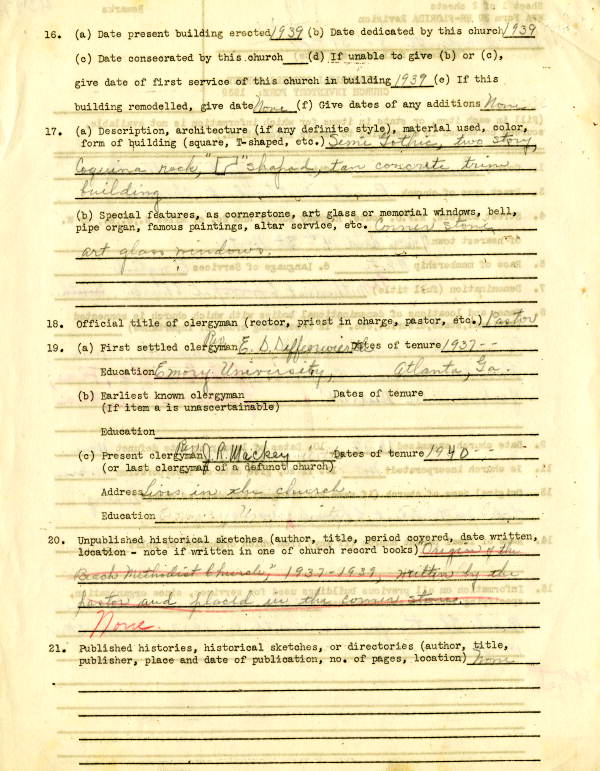 16. (a) Date present building erected 1939 (b) Date dedicated by this church 1939
(c) Date consecrated by this church (d) If unable to give (b) or (c),
give date of first service of this church in building 1939 (e) If this
building remodelled, give date None (f) Give dates of any additions None
17. (a) Description, architecture (if any definite style), material used, color,
form of building (square, T-shaped, etc.) Semi Gothic, two story,
Coquina rock, " " shaped, tan concrete trim
building
(b) Special features, as cornerstone, art glass or memorial windows, bell,
pipe organ, famous paintings, altar service, etc. Corner stone,
art glass windows.
18. Official title of clergyman (rector, priest in charge, pastor, etc.) Pastor
19. (a) First settled clergyman Rev. E. D. Dates of tenure 1937--
Education Emory University, Atlanta, Ga.
(b) Earliest known clergyman Dates of tenure
(If item a is unascertainable)
Education
(c) Present clergyman Rev. J. R. Mackey Dates of tenure 1940--
(or last clergyman of a defunct church)
Address lives in the church
Education
20. Unpublished historical sketches (author, title, period covered, date written,
location - note if written in one of church record books) "Origin of the
Beach Methodist Church," 1937-1939, written by the
pastor and placed in the corner stone.
None.
21. Published histories, historical sketches, or directories (author, title,
publisher, place and date of publication, no. of pages, location) None